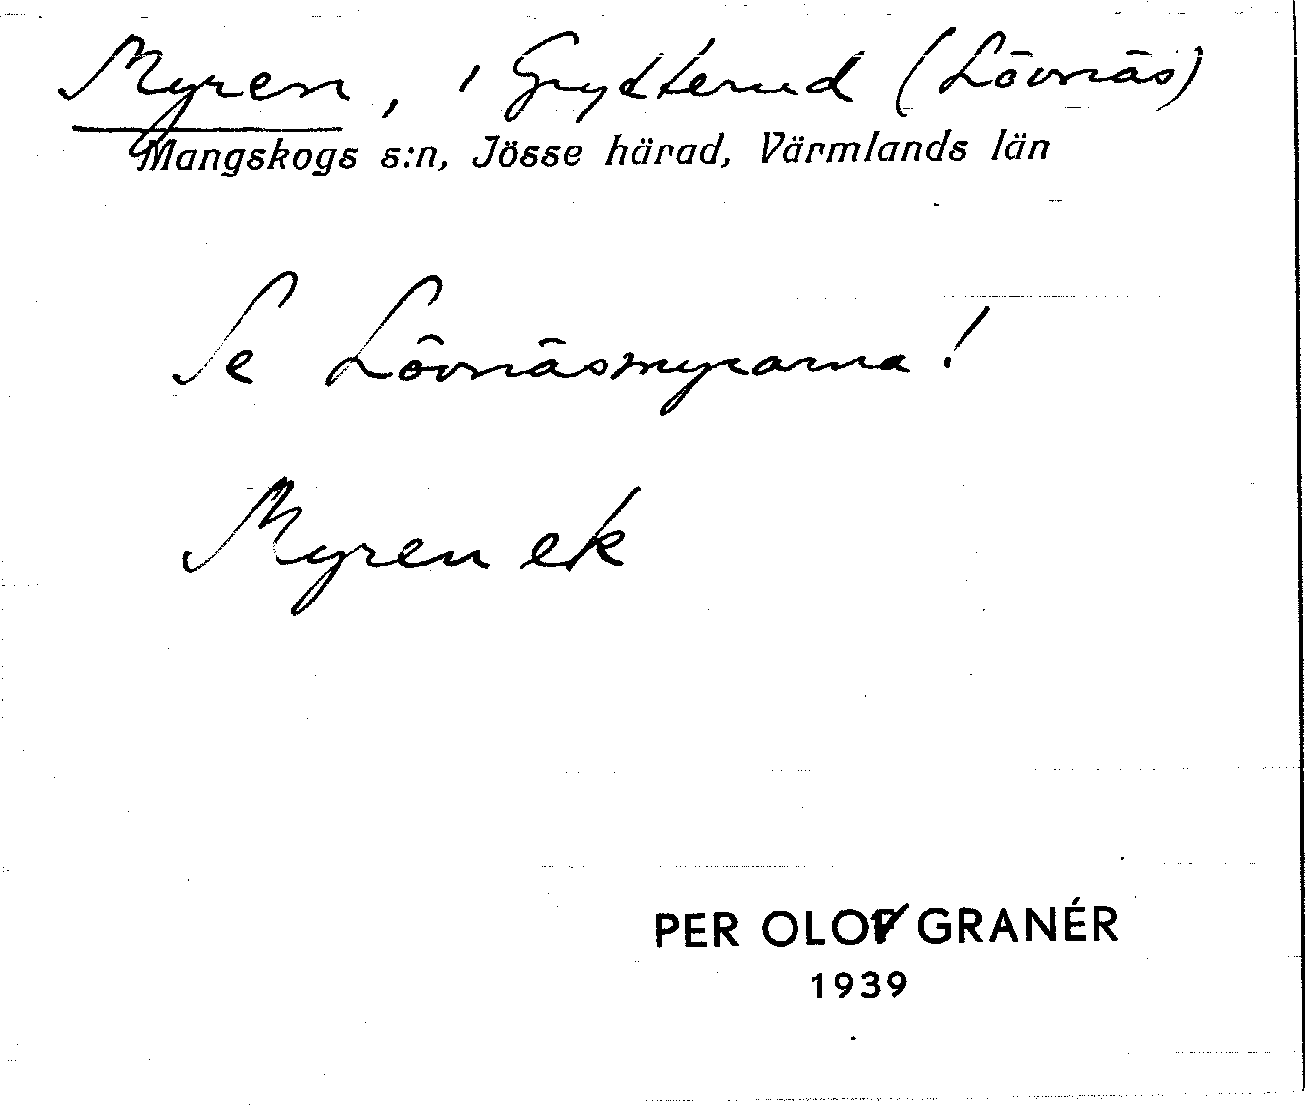 Myren, i Grytterud (Lövnäs)
Mangskogs s:n, Jösse härad, Värmlands län
Se Lövnäsmyrarna!
Myren ek
PER OLOV GRANÉR
1939